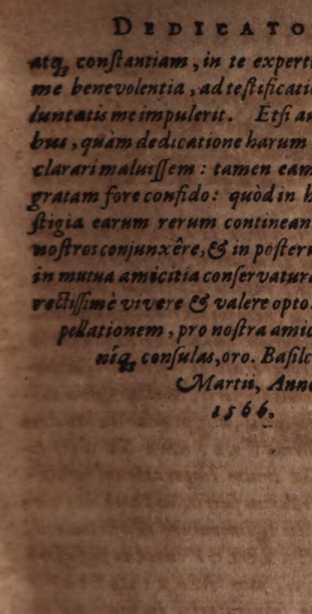 DEDICATO
atq́; conſtantiam, in te experti
me benevolentia, ad teſtificatio
luntatis me impulerit. Etſi an
bus, quàm dedicatione harum
clarari maluiſſem: tamen eam
gratam fore confido: quòd in h
ſtigia earum rerum continean
noſtros conjunxêre, & in poſteru
in mutua amicitia conſervatura
rectiſſimè vivere & valere opto.
pellationem, pro noſtra amic
niq́; conſulas, oro. Baſile
Martii, Anno
1566.